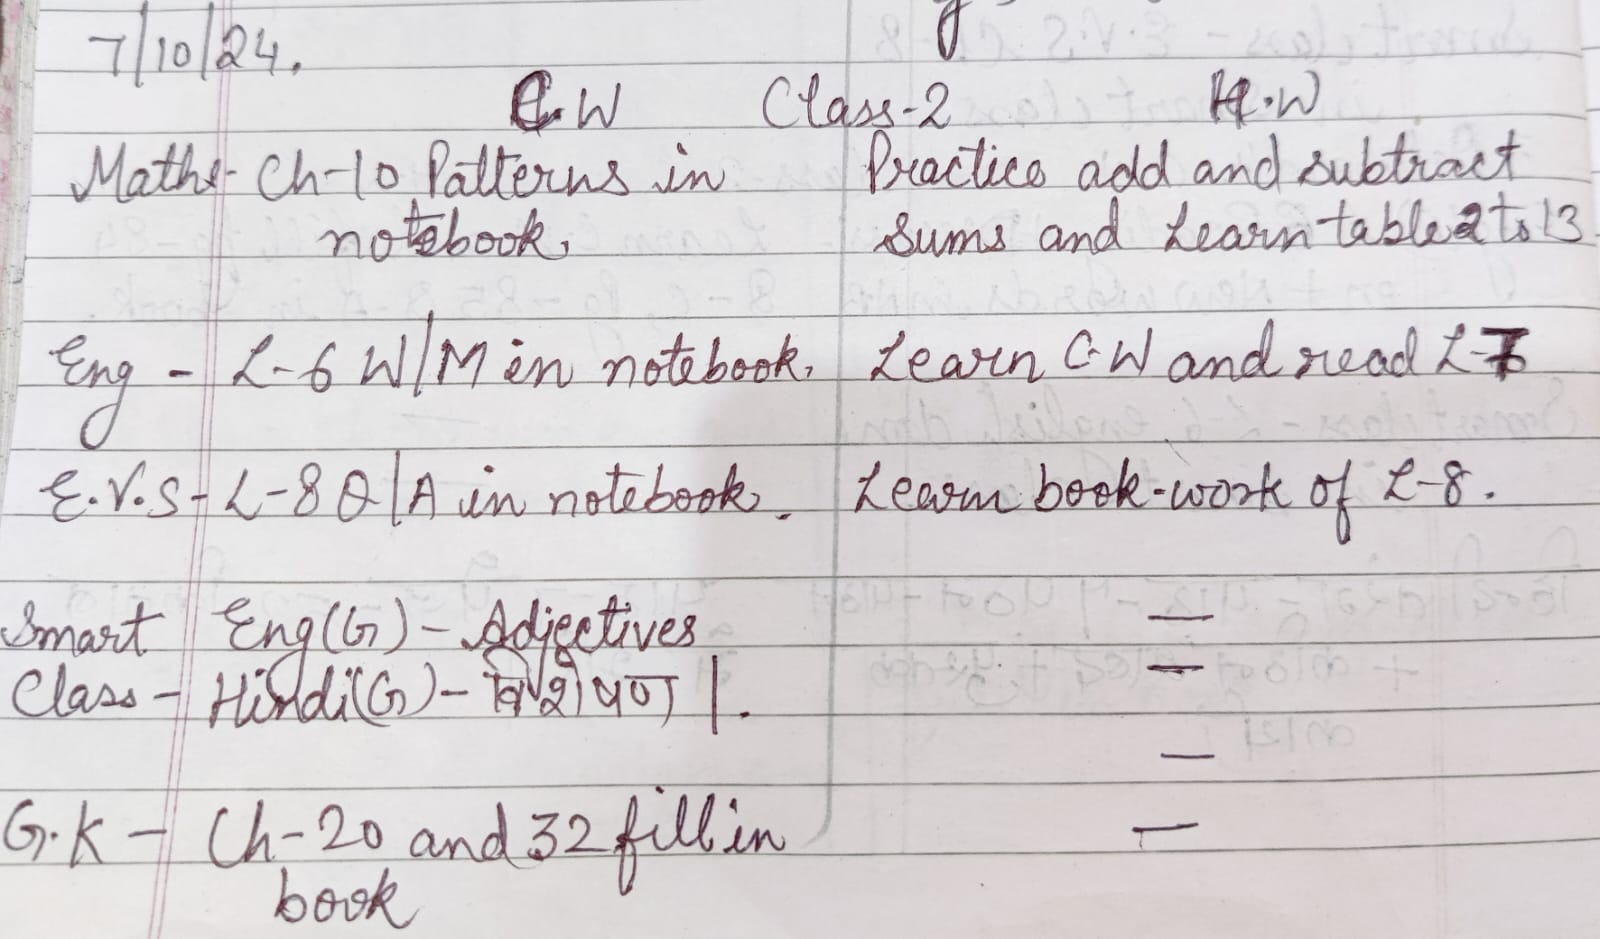 7/10/24.
C.W Class-2 H.W
Maths- Ch-10 Patterns in Practice add and subtract
notebook. sums and Learn table 2 to 13
Eng - L-6 W/M in notebook. Learn C.W and read L-7
E.V.S - L-8 Q/A in notebook. Learn book-work of L-8.
Smart Eng(G) - Adjectives —
Class - Hindi(G) - विशेषण |. —
—
G.K - Ch-20 and 32 fill in —
book